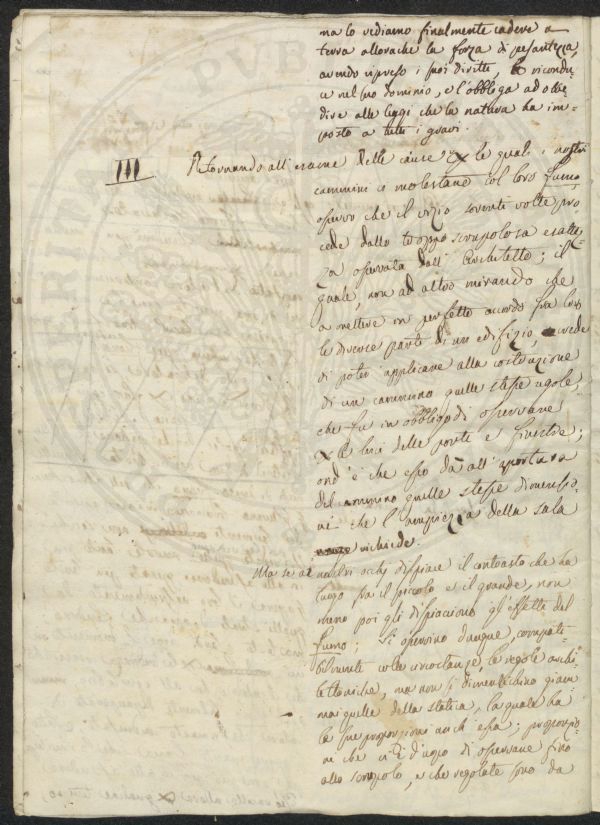 ma lo vediamo finalmente cadere a
terra allorache la forza di pesantezza,
avendo ripreso i suoi diritti, lo ricondu-
ce nel suo dominio, e l'obbliga ad obbe-
dire alle leggi che la natura ha im-
posto a tutti i gravi.
III Ritornando all'esame delle cause per le quali i nostri
cammini ci molestano col loro fumo
osservo che il vizio sovente volte pro-
cede dalla troppo scrupolosa esattez-
za osservata dall'Architetto; il
quale, non ad altro mirando che
a mettere in perfetto accordo fra loro
le diverse parti di un edifizio, crede
di poter applicare alla costruzione
di un cammino quelle stesse regole,
che fu in obbligo di osservare
per le luci delle porte e finestre;
ond'è che esso dà all'apertura
del cammino quelle stesse dimensio-
ni che l'ampiezza della sala
richiede.
Ma se ai nostri occhj dispiace il contrasto che ha
luogo fra il piccolo e il grande, non
meno poi gli dispiacciono gl'effetti del
fumo; Si osservino dunque, compati-
bilmente colle circostanze, le regole archi-
tettoniche, ma non si dimentichino giam-
mai quelle della statica, la quale ha
le sue proporzioni anch'essa; proporzio-
ni che vi è d'uopo di osservare fino
allo scrupolo, e che regolate sono da